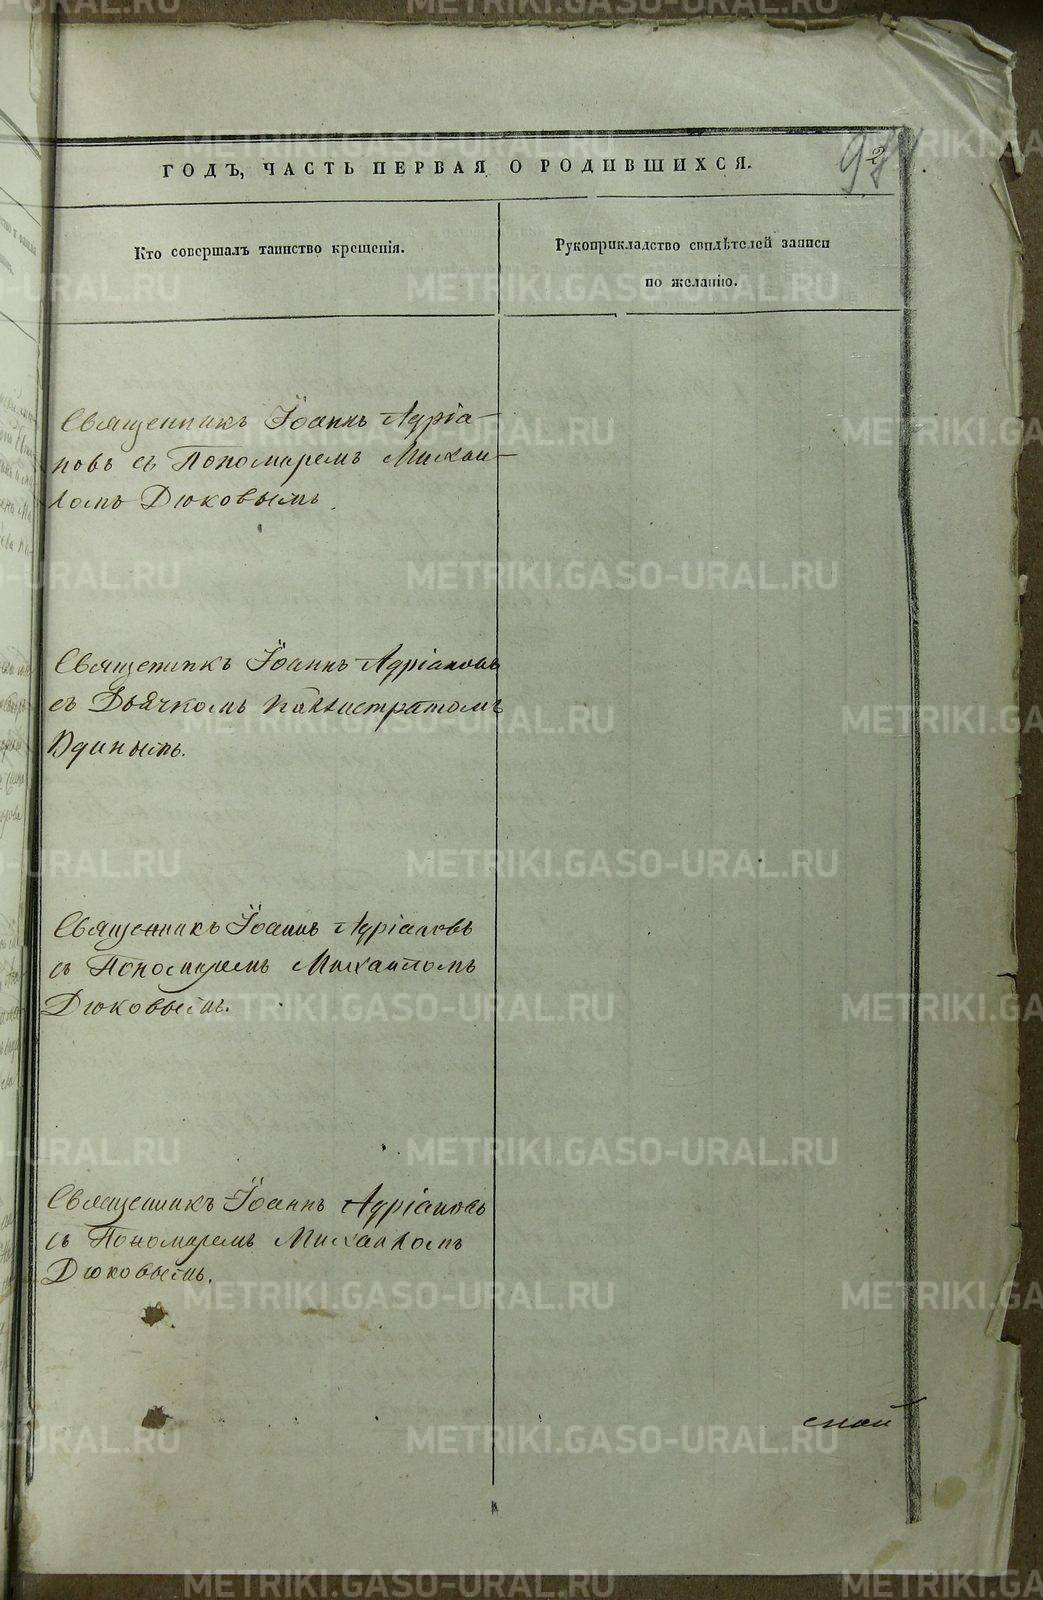 ГОДЪ, ЧАСТЬ ПЕРВАЯ О РОДИВШИХСЯ.
Кто совершалъ таинство крещенія.
Рукоприкладство свидѣтелей записи
по желанію.
Священникъ Іоаннъ Адріа-
новъ съ Пономаремъ Михаи-
ломъ Дюковымъ.
Священникъ Іоаннъ Адріановъ
съ Дьячкомъ Каллистратомъ
Удинымъ.
Священникъ Іоаннъ Адріановъ
съ Пономаремъ Михаиломъ
Дюковымъ.
Священникъ Іоаннъ Адріановъ
съ Пономаремъ Михаиломъ
Дюковымъ.
METRIKI.GASO-URAL.RU